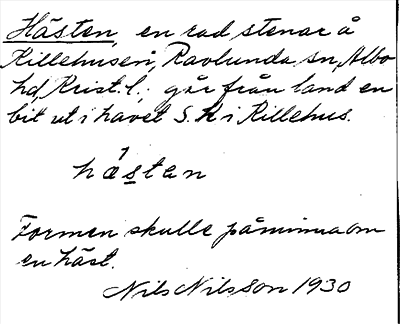 Hästen, en rad stenar å
Killehusen, Ravlunda sn, Albo
hd, Krist. l., går från land en
bit ut i havet S. h i Killehus.
hæstan
Formen skulle påminna om
en häst.
Nils Nilsson 1930